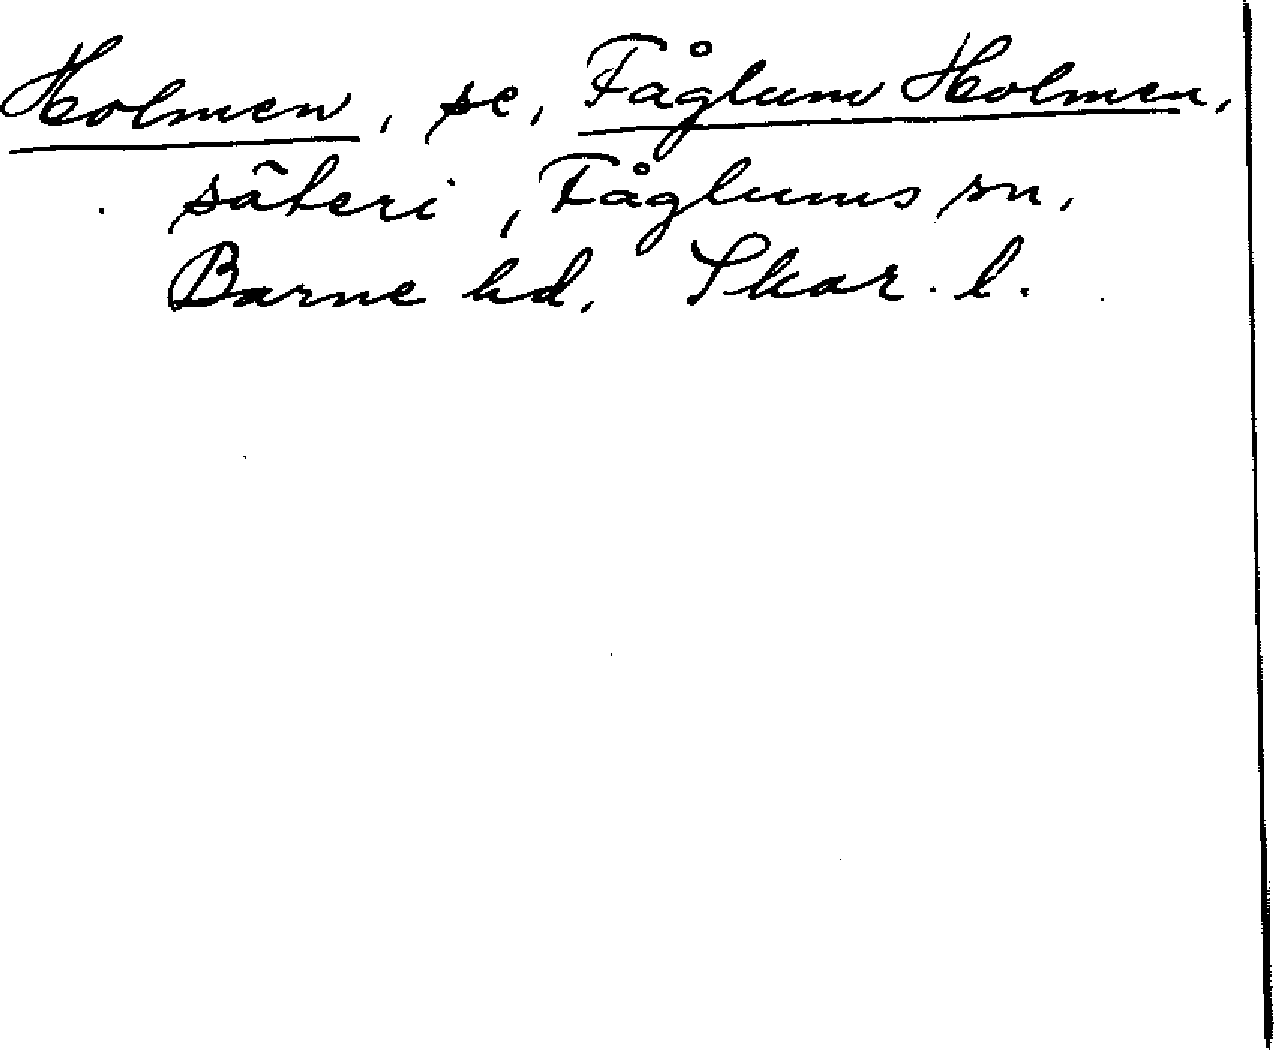 Holmen, se, Fåglum Holmen,
säteri, Fåglums sn,
Barne hd. Skar. l.